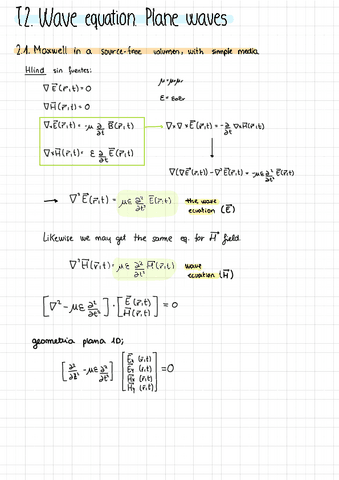 T2. Wave equation. Plane waves
2.1. Maxwell in a source-free volumen, with simple media
Hlind sin fuentes:
∇ E⃗(r⃗,t) = 0
μ = μ₀μᵣ
∇ H⃗(r⃗,t) = 0
ε = ε₀εᵣ
∇×E⃗(r⃗,t) = -μ ∂/∂t H⃗(r⃗,t) → ∇×∇×E⃗(r⃗,t) = -∂/∂t ∇×H⃗(r⃗,t)
∇×H⃗(r⃗,t) = ε ∂/∂t E⃗(r⃗,t)
∇(∇E⃗(r⃗,t)) - ∇²E⃗(r⃗,t) = -με ∂²/∂t² E⃗(r⃗,t)
→ ∇² E⃗(r⃗,t) = με ∂²/∂t² E⃗(r⃗,t) the wave
equation (E⃗)
Likewise we may get the same eq. for H⃗ field.
∇² H⃗(r⃗,t) = με ∂²/∂t² H⃗(r⃗,t) wave
equation (H⃗)
[∇² - με ∂²/∂t²] · [E⃗(r⃗,t) H⃗(r⃗,t)] = 0
geometria plana 1D;
[∂²/∂z² - με ∂²/∂t²] [Ex (r⃗,t) Ey (r⃗,t) Hx (r⃗,t) Hy (r⃗,t)] = 0